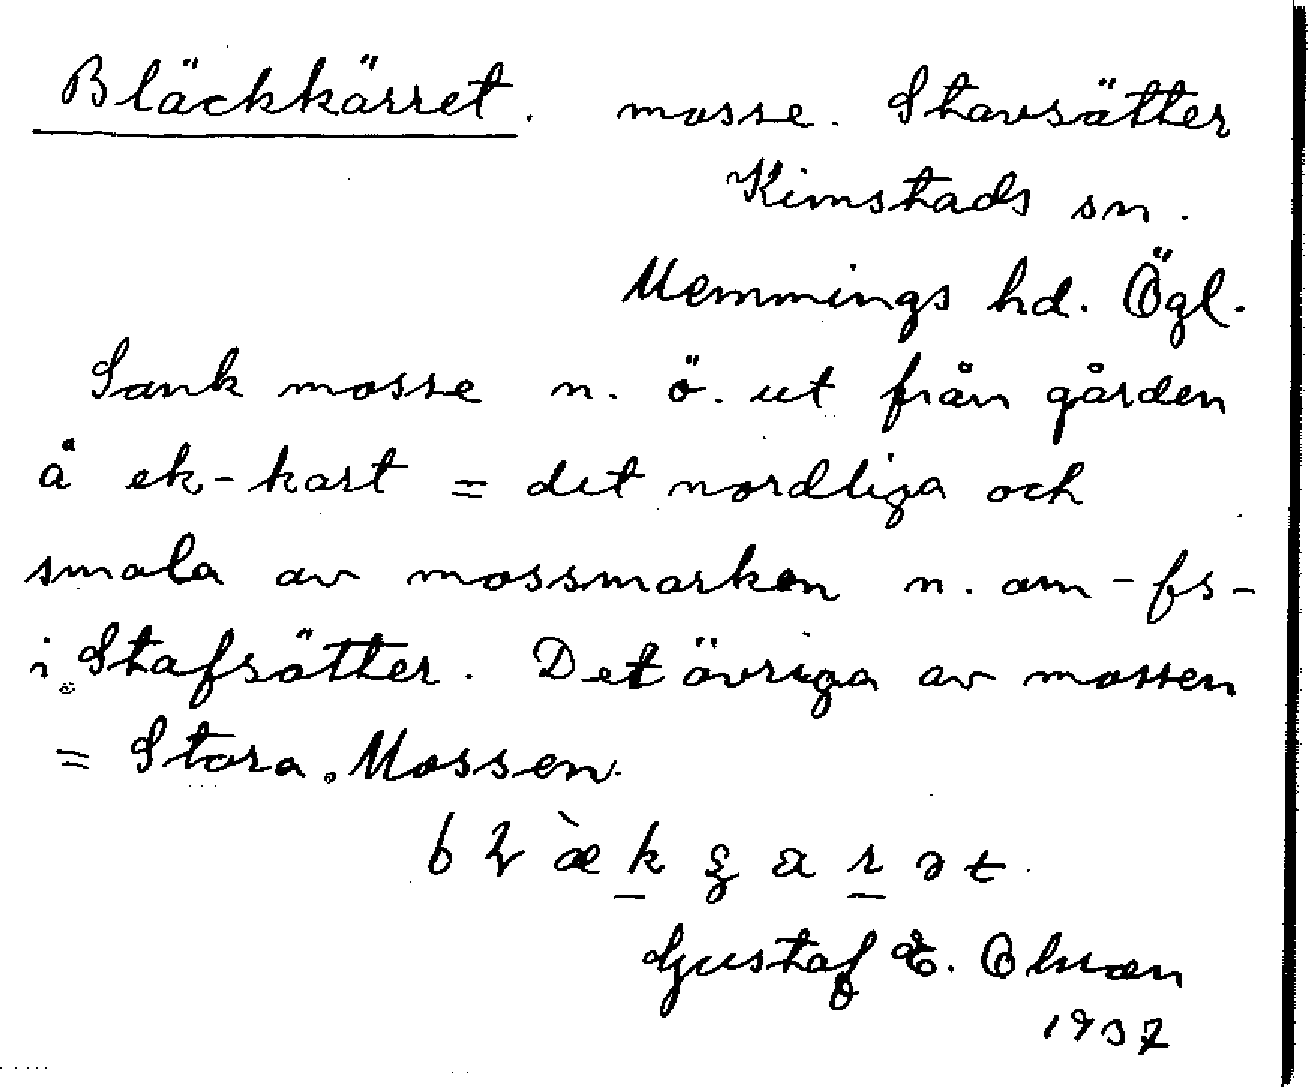 Bläckkärret. mosse. Stavsätter
Kimstads sn.
Memmings hd. Ögl.
Sank mosse n. ö. ut från gården
å ek-kart = det nordliga och
smala av mossmarken n. om -fs-
i Stafsätter. Det övriga av mossen
= Stora Mossen.
Gustaf E. Olsson
1937